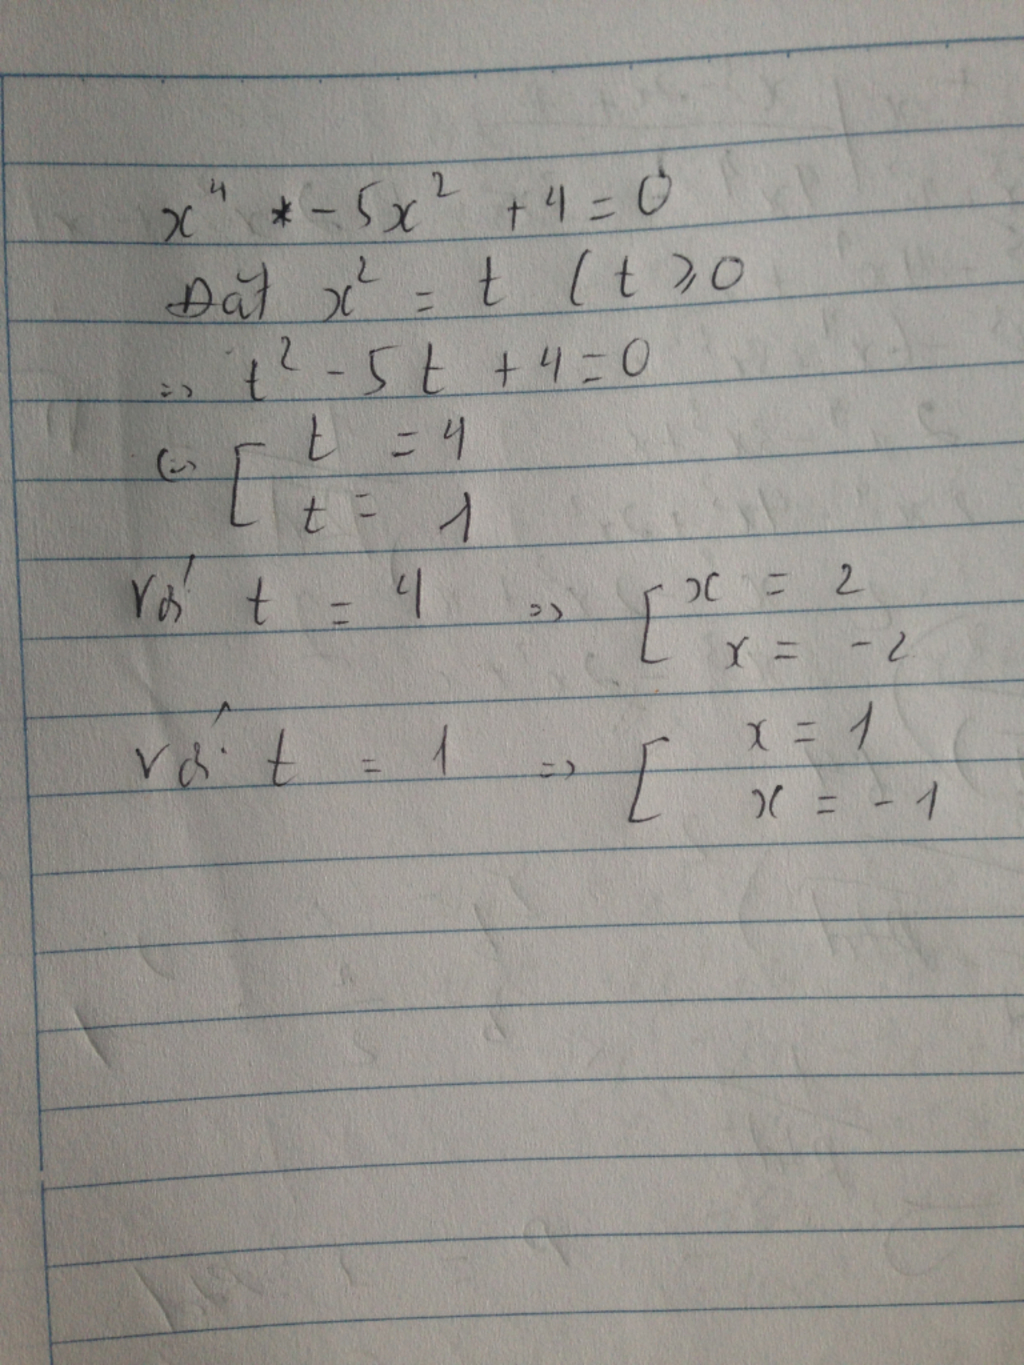 x⁴ * - 5x² + 4 = 0
Đặt x² = t ( t ⩾ 0
=> t² - 5t + 4 = 0
(=> [ t = 4
t = 1
Với t = 4 => [ x = 2
x = -2
Với t = 1 => [ x = 1
x = -1